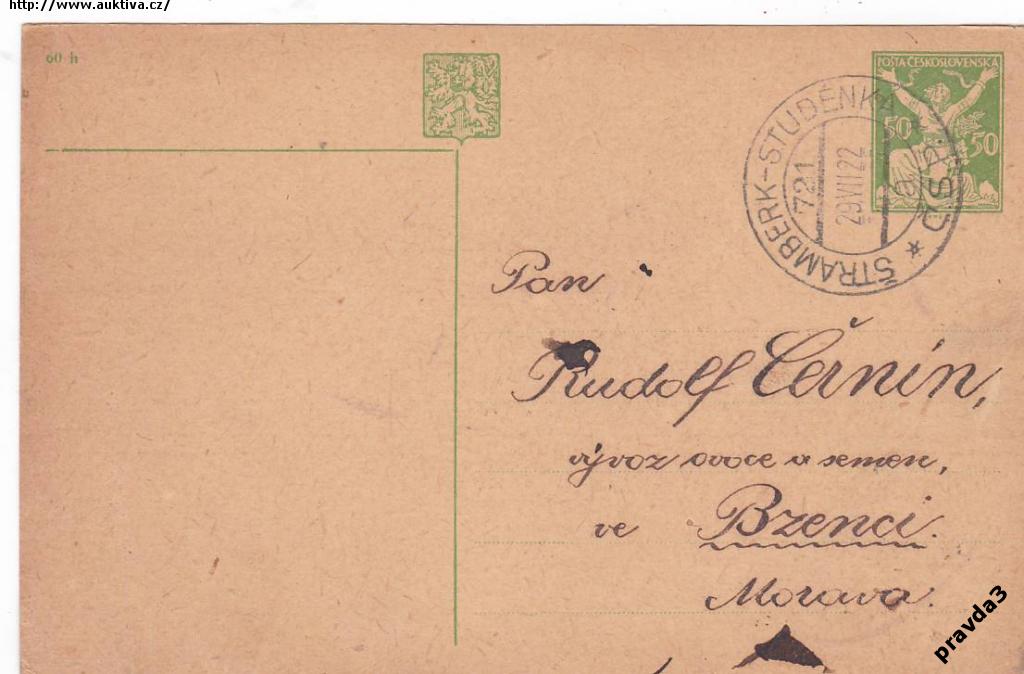 http://www.auktiva.cz/
60 h
POŠTA ČESKOSLOVENSKÁ
50 50
ŠTRAMBERK-STUDÉNKA
721
29 VII 22
Č.S.P.
a
Pan
Rudolf Černín,
vývoz ovoce a semen,
ve Bzenci.
Morava.
pravda3